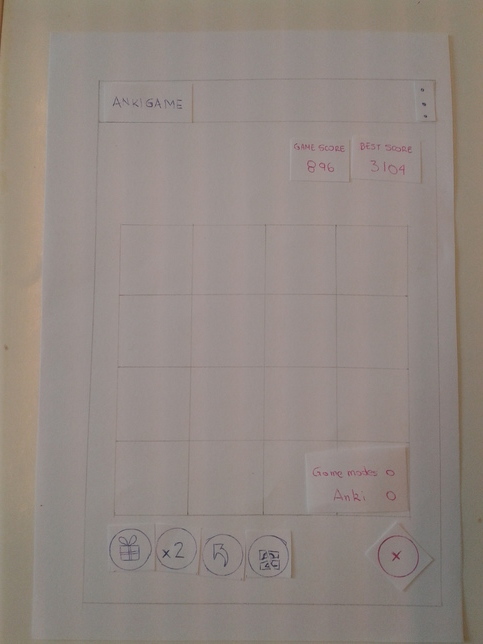 ANKIGAME
GAME SCORE
896
BEST SCORE
3104
Game modes 0
Anki 0
x2
x